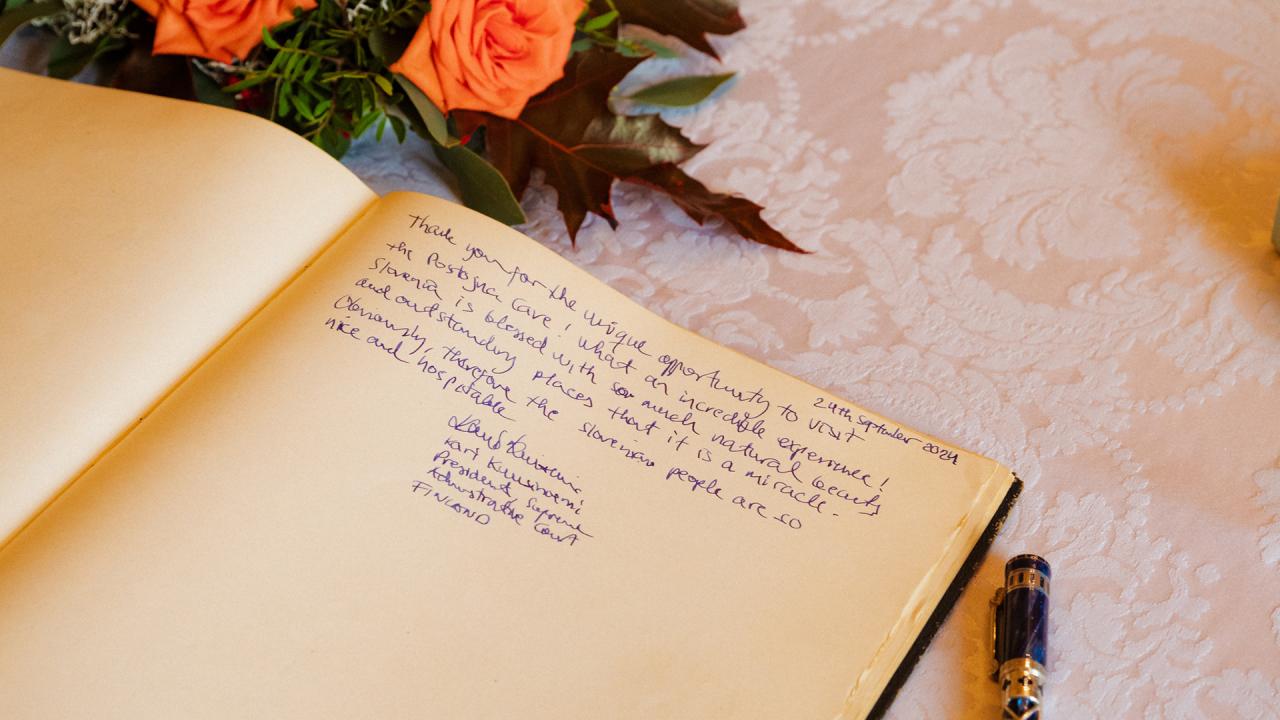 24th September 2024
Thank you for the unique opportunity to visit
the Postojna Cave! What an incredible experience!
Slovenia is blessed with so much natural beauty
and outdstanding places that it is a miracle.
Obviously, therefore the slovenian people are so
nice and hospitable
Kari Kuusiniemi
President, Supreme
Administrative Court
FINLAND